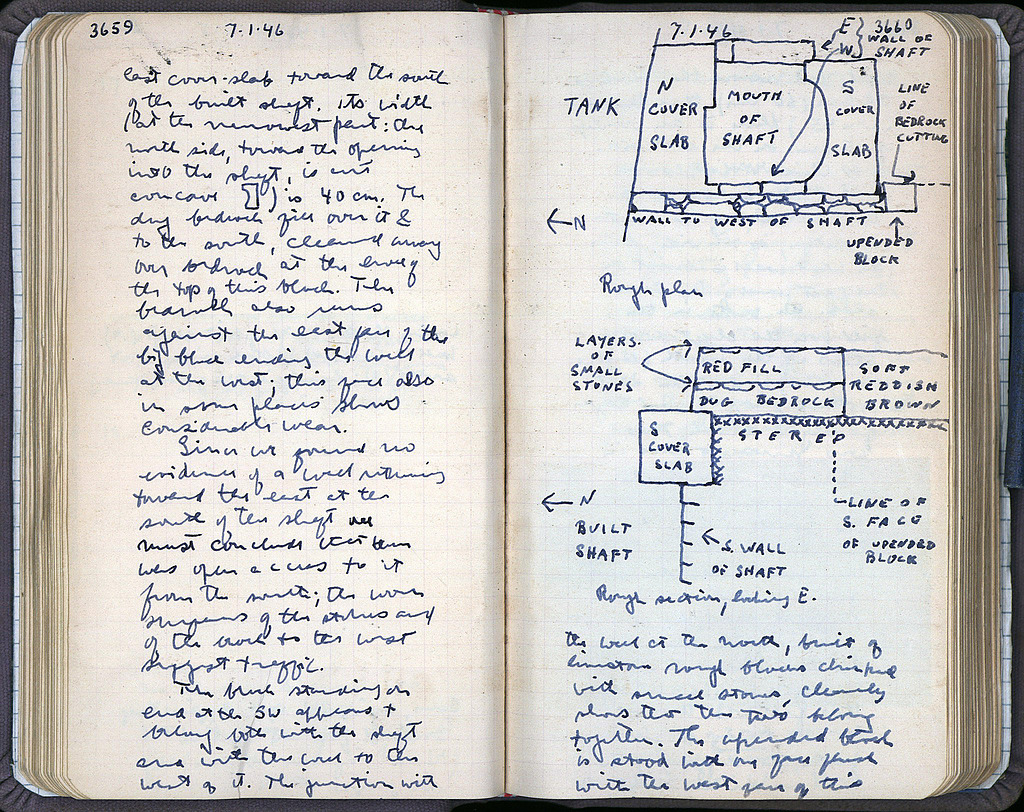 3659
7.1.46
last cover-slab toward the south
of the built shaft. Its width
(at the narrowest part: the
north side, toward the opening
into the shaft, is cut
concave) is 40 cm. The
dug bedrock fill over it &
to the south, cleaned away
over bedrock at the level of
the top of this block. This
bedrock also runs
against the east face of the
big block ending the wall
at the west; this face also
in some places shows
considerable wear.
Since we found no
evidence of a wall returning
toward the east at the
south of the shaft we
must conclude that there
was open access to it
from the south; the worn
of the stones and
of the block to the west
suggest traffic.
The block standing on
end at the SW appears to
belong both with the shaft
and with the wall to the
west of it. The junction with
7.1.46
3660
E
W
WALL OF
SHAFT
TANK
N
COVER
SLAB
MOUTH
OF
SHAFT
S
COVER
SLAB
LINE
OF
BEDROCK
CUTTING
←N
WALL TO WEST OF SHAFT
UPENDED
BLOCK
Rough plan
LAYERS
OF
SMALL
STONES
RED FILL
DUG BEDROCK
SOFT
REDDISH
BROWN
STEREO
S
COVER
SLAB
←N
BUILT
SHAFT
S. WALL
OF SHAFT
LINE OF
S. FACE
OF UPENDED
BLOCK
Rough section, looking E.
the wall at the north, built of
limestone rough blocks chinked
with small stones, clearly
shows that the two belong
together. The upended block
is stood with one face flush
with the west face of this